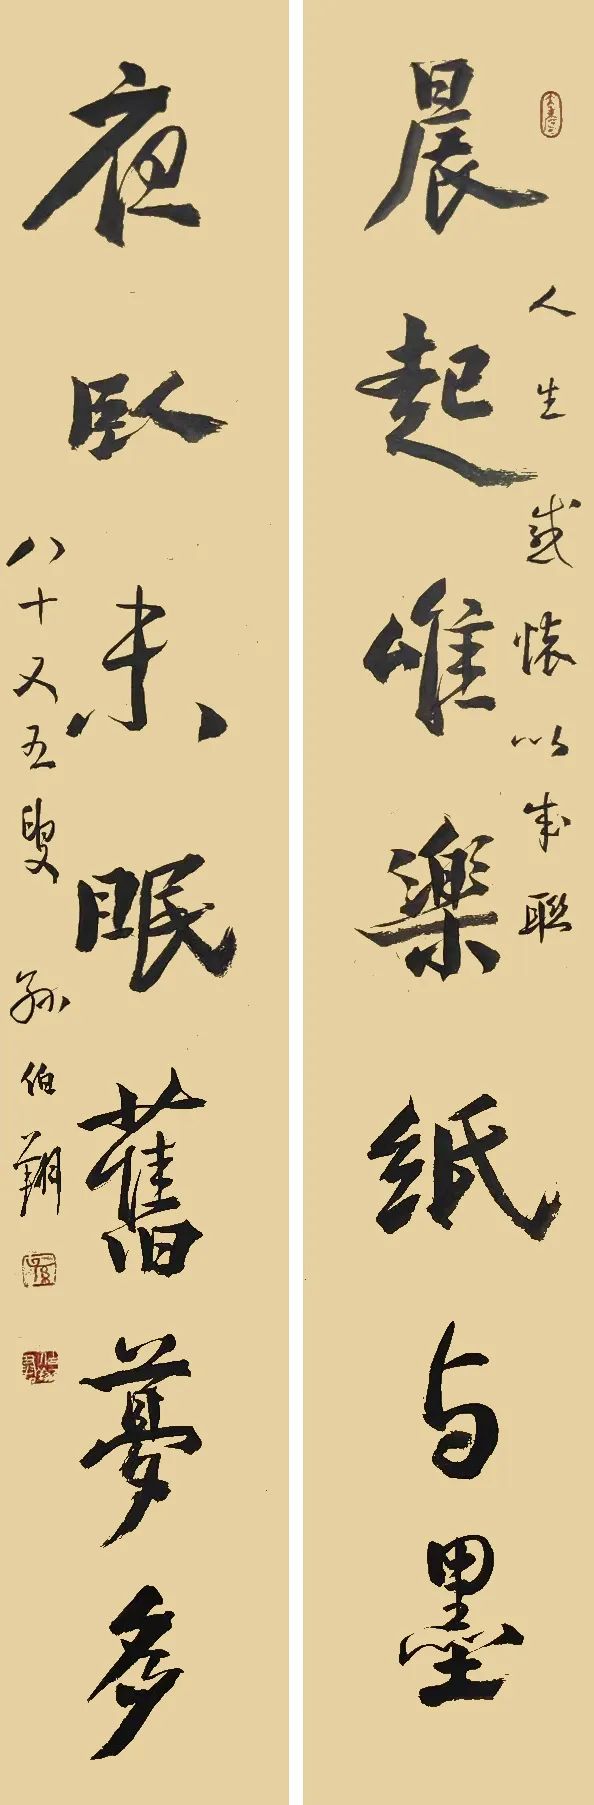 人生感懷以成聯
晨起唯樂紙与墨
夜臥未眠舊夢多
八十又五叟
孫伯翔